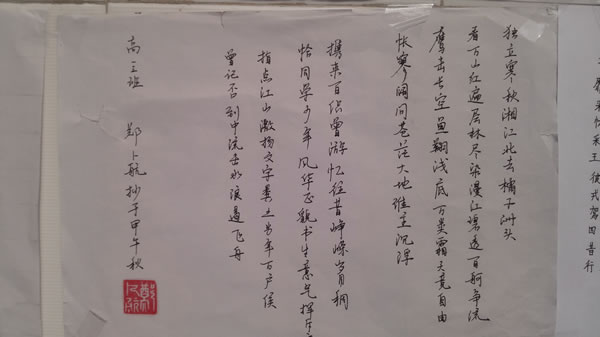 独立寒秋湘江北去橘子洲头
看万山红遍层林尽染漫江碧透百舸争流
鹰击长空鱼翔浅底万类霜天竞自由
怅寥阔问苍茫大地谁主沉浮
携来百侣曾游忆往昔峥嵘岁月稠
恰同学少年风华正茂书生意气挥斥
指点江山激扬文字粪土当年万户侯
曾记否到中流击水浪遏飞舟
高三班 郑卜航抄于甲午秋